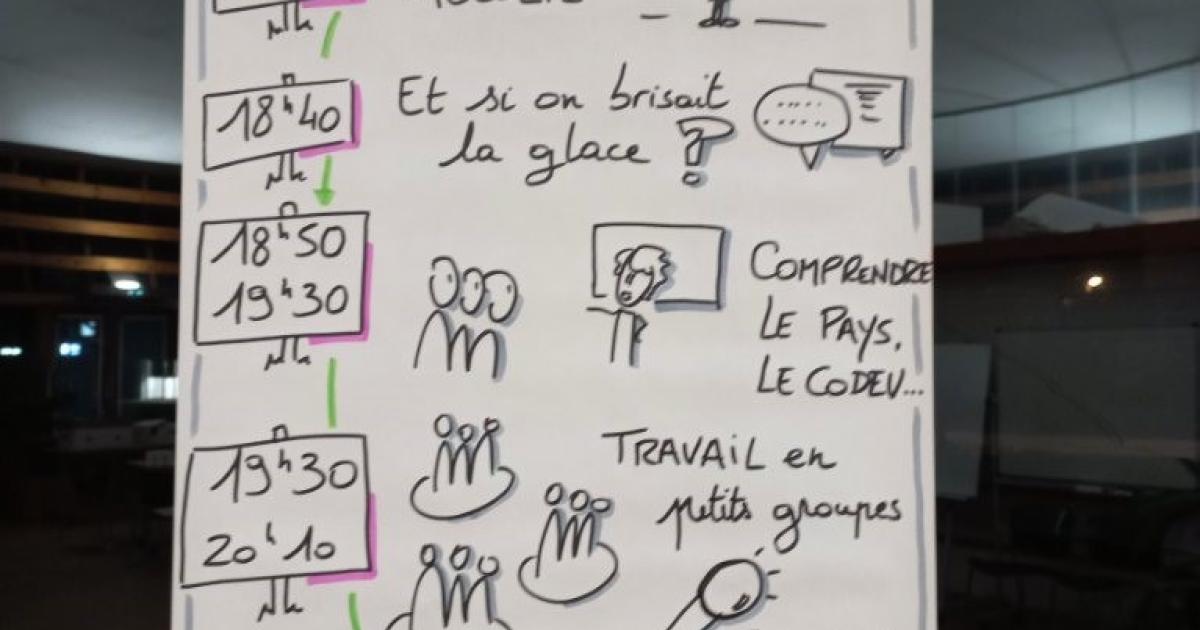 18h40
Et si on brisait
la glace ?
18h50
19h30
COMPRENDRE
LE PAYS,
LE CODEV...
19h30
20h10
TRAVAIL en
petits groupes